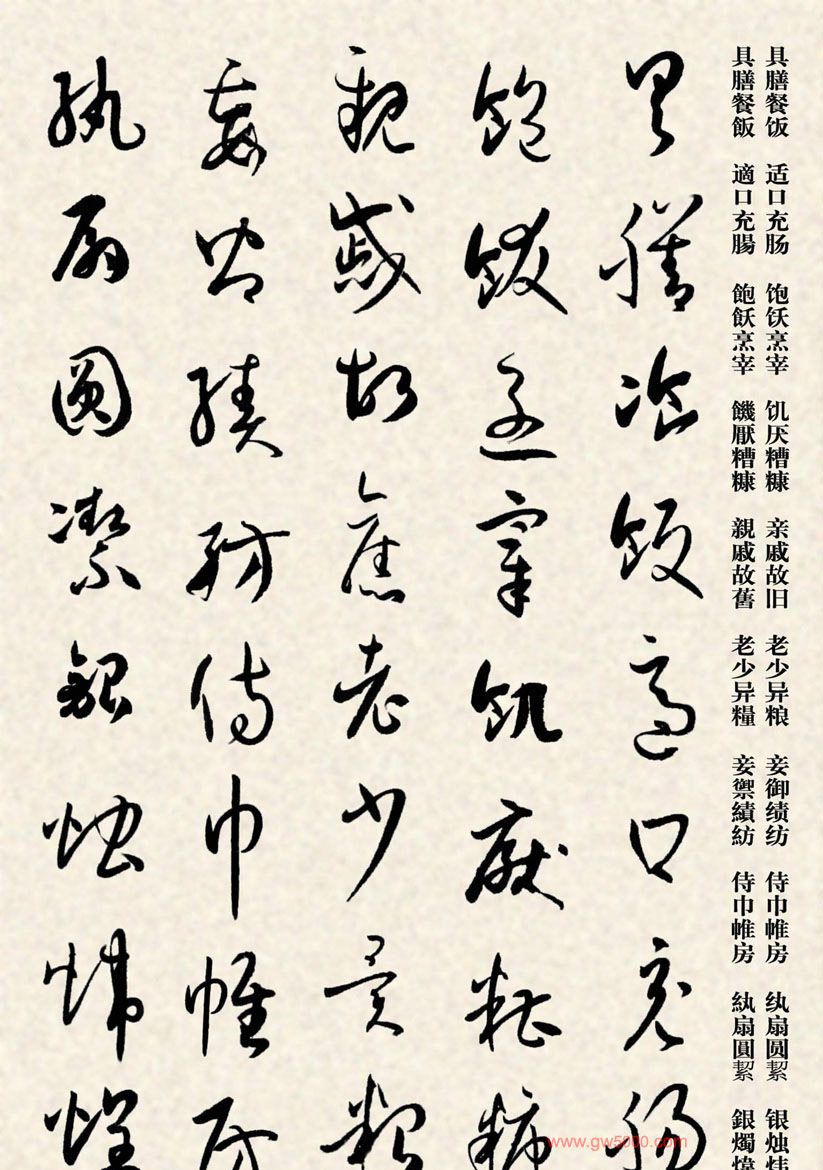 具膳餐饭 适口充肠 饱饫烹宰 饥厌糟糠 亲戚故旧 老少异粮 妾御绩纺 侍巾帷房 纨扇圆絜 银烛炜
具膳餐飯 適口充腸 飽飫烹宰 饑厭糟糠 親戚故舊 老少异糧 妾禦績紡 侍巾帷房 紈扇圓絜 銀燭煒
具膳飡飯適口充腸
飽飫烹宰飢厭糟糠
親戚故舊老少異糧
妾御績紡侍巾帷房
紈扇圓潔銀燭煒煌
www.gw5000.com